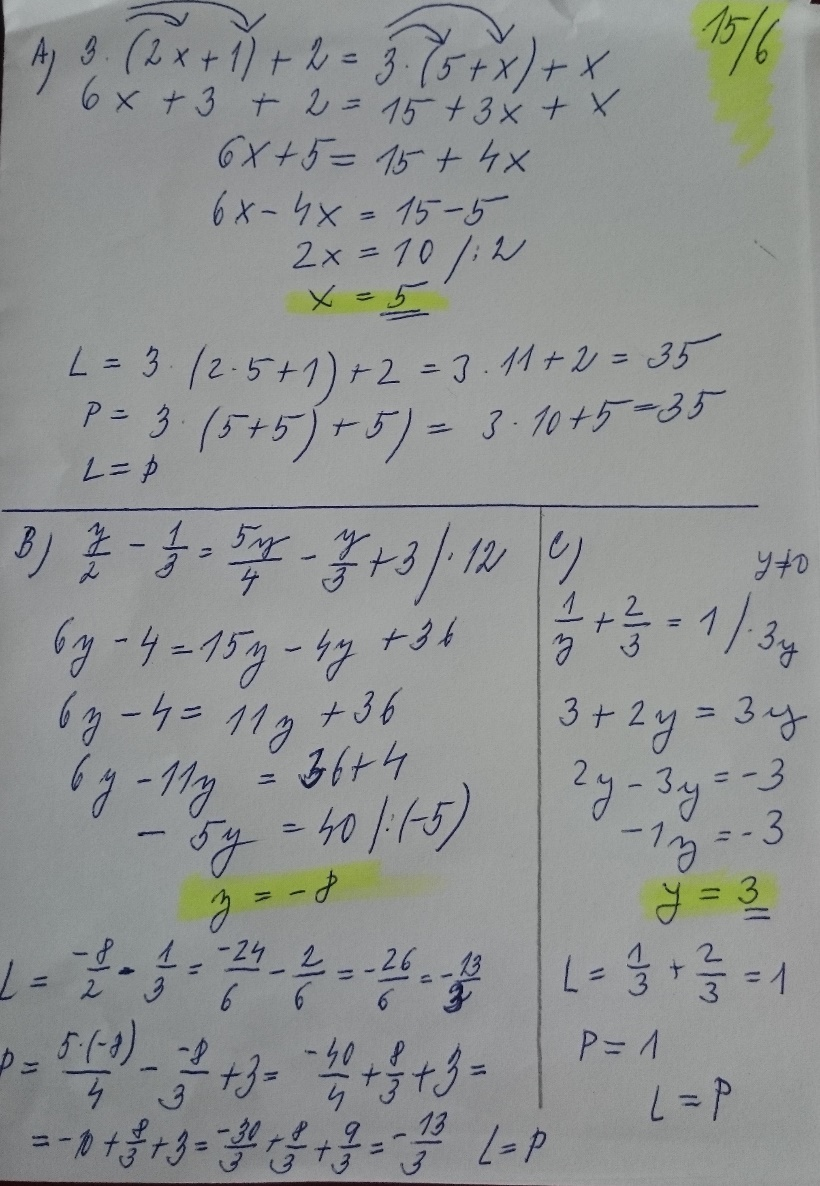 15/6
A) 3·(2x+1)+2 = 3·(5+x)+x
6x+3 + 2 = 15+3x + x
6x+5 = 15 + 4x
6x-4x = 15-5
2x = 10 /:2
x = 5
L = 3·(2·5+1)+2 = 3·11+2 = 35
P = 3·(5+5)+5) = 3·10+5=35
L = P
B) y/2 - 1/3 = 5y/4 - y/3 +3 /·12
6y-4=15y-4y+36
6y-4= 11y+36
6y-11y = 36+4
- 5y = 40 /:(-5)
y = -8
L = -8/2 - 1/3 = -24/6 - 2/6 = -26/6 = -13/3
P = 5·(-8)/4 - -8/3 +3 = -40/4 + 8/3 +3 =
= -10 + 8/3 +3 = -30/3 + 8/3 + 9/3 = -13/3 L=P
C) y≠0
1/y + 2/3 = 1 /·3y
3+2y = 3y
2y-3y = -3
-1y = -3
y = 3
L = 1/3 + 2/3 = 1
P = 1
L = P